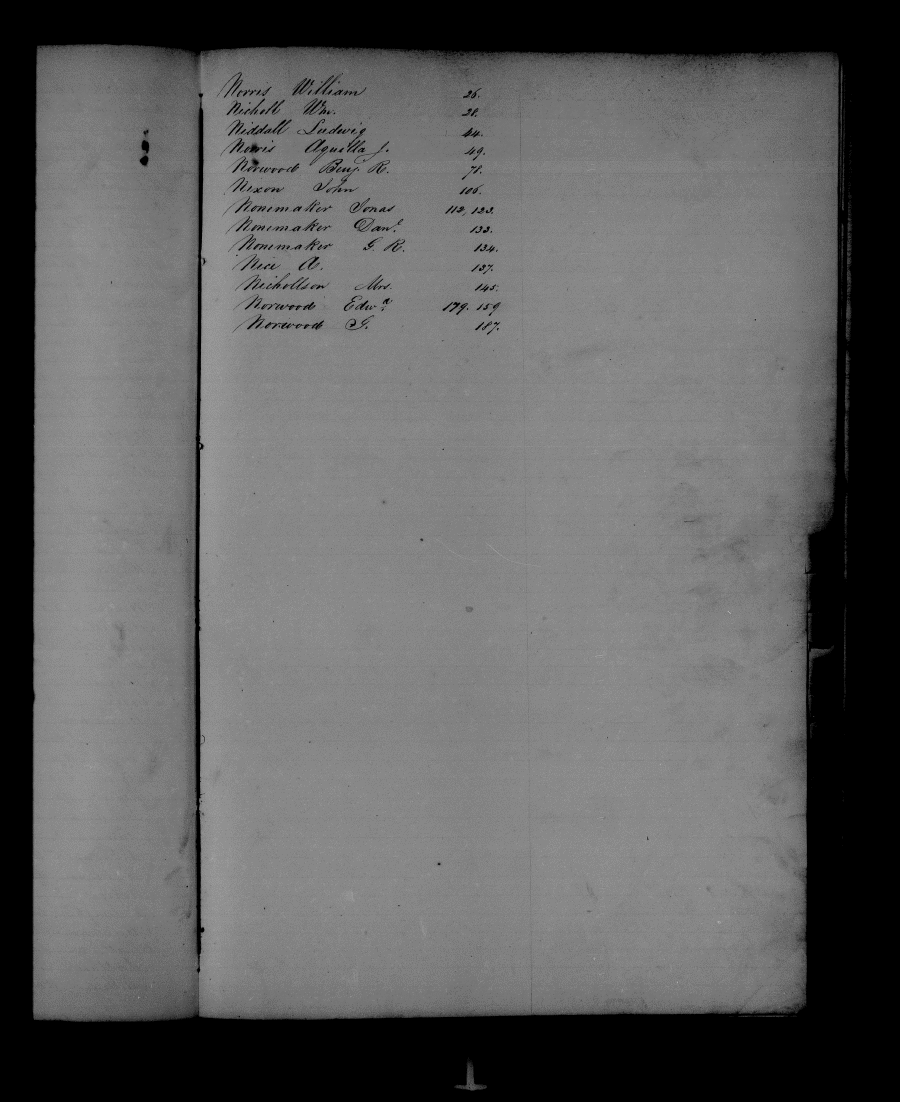 Norris William 26.
Nicholl Wm. 28.
Niddall Ludwig 44.
Norris Aquilla J. 49.
Norwood Benj. R. 78.
Nixon John 106.
Nonemaker Jonas 112, 123.
Nonemaker Danl. 133.
Nonemaker G. R. 134.
Nice A. 137.
Nichollson Mrs. 145.
Norwood Edwd. 179. 159
Norwood G. 187.